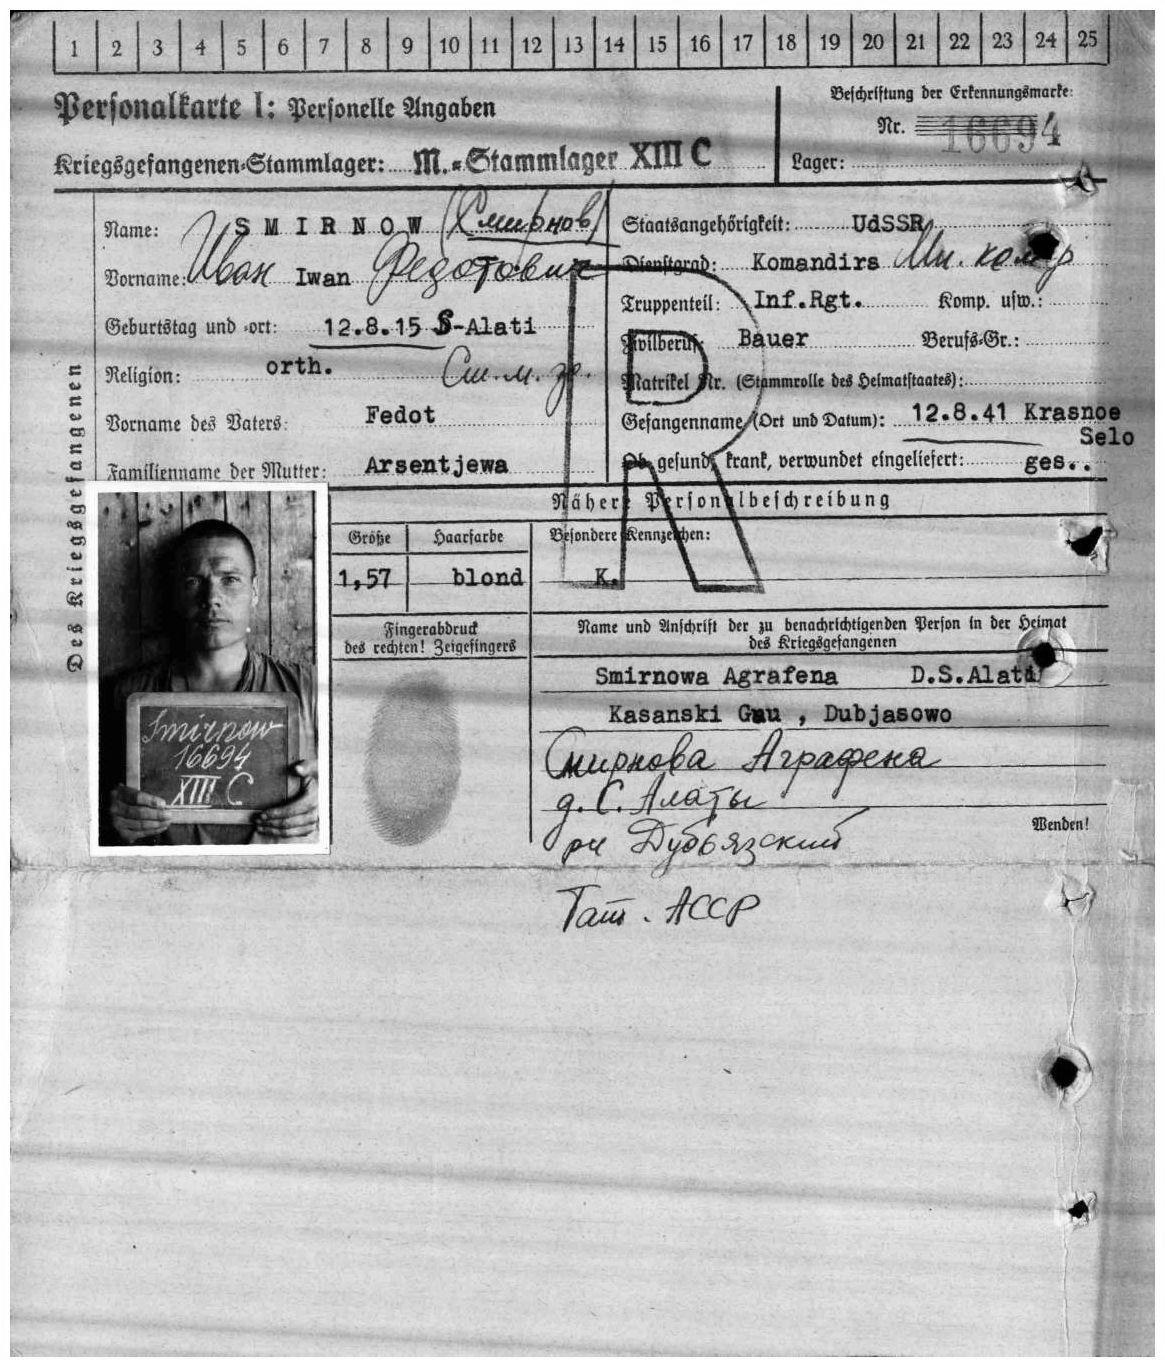 1 2 3 4 5 6 7 8 9 10 11 12 13 14 15 16 17 18 19 20 21 22 23 24 25
Personalkarte I: Personelle Angaben
Beschriftung der Erkennungsmarke:
Nr. 16694
Kriegsgefangenen-Stammlager: M.-Stammlager XIII C
Lager:
Des Kriegsgefangenen
Name: SMIRNOW (Смирнов)
Vorname: Иван Iwan Федотович
Geburtstag und -ort: 12.8.15 S-Alati
Religion: orth.
Vorname des Vaters: Fedot
Familienname der Mutter: Arsentjewa
Staatsangehörigkeit: UdSSR
Dienstgrad: Komandirs Мл. ком-р
Truppenteil: Inf.Rgt. Komp. usw.:
Zivilberuf: Bauer Berufs-Gr.:
Matrikel Nr. (Stammrolle des Heimatstaates):
Gefangenname (Ort und Datum): 12.8.41 Krasnoe
Selo
Ob gesund, krank, verwundet eingeliefert: ges..
R
Nähere Personalbeschreibung
Größe Haarfarbe Besondere Kennzeichen:
1,57 blond K.
Fingerabdruck
des rechten! Zeigefingers
Name und Anschrift der zu benachrichtigenden Person in der Heimat
des Kriegsgefangenen
Smirnowa Agrafena D.S.Alati
Kasanski Gau , Dubjasowo
Смирнова Аграфена
д. С. Алаты
рн Дубьязский
Wenden!
Тат. АССР
Smirnow
16694
XIII C